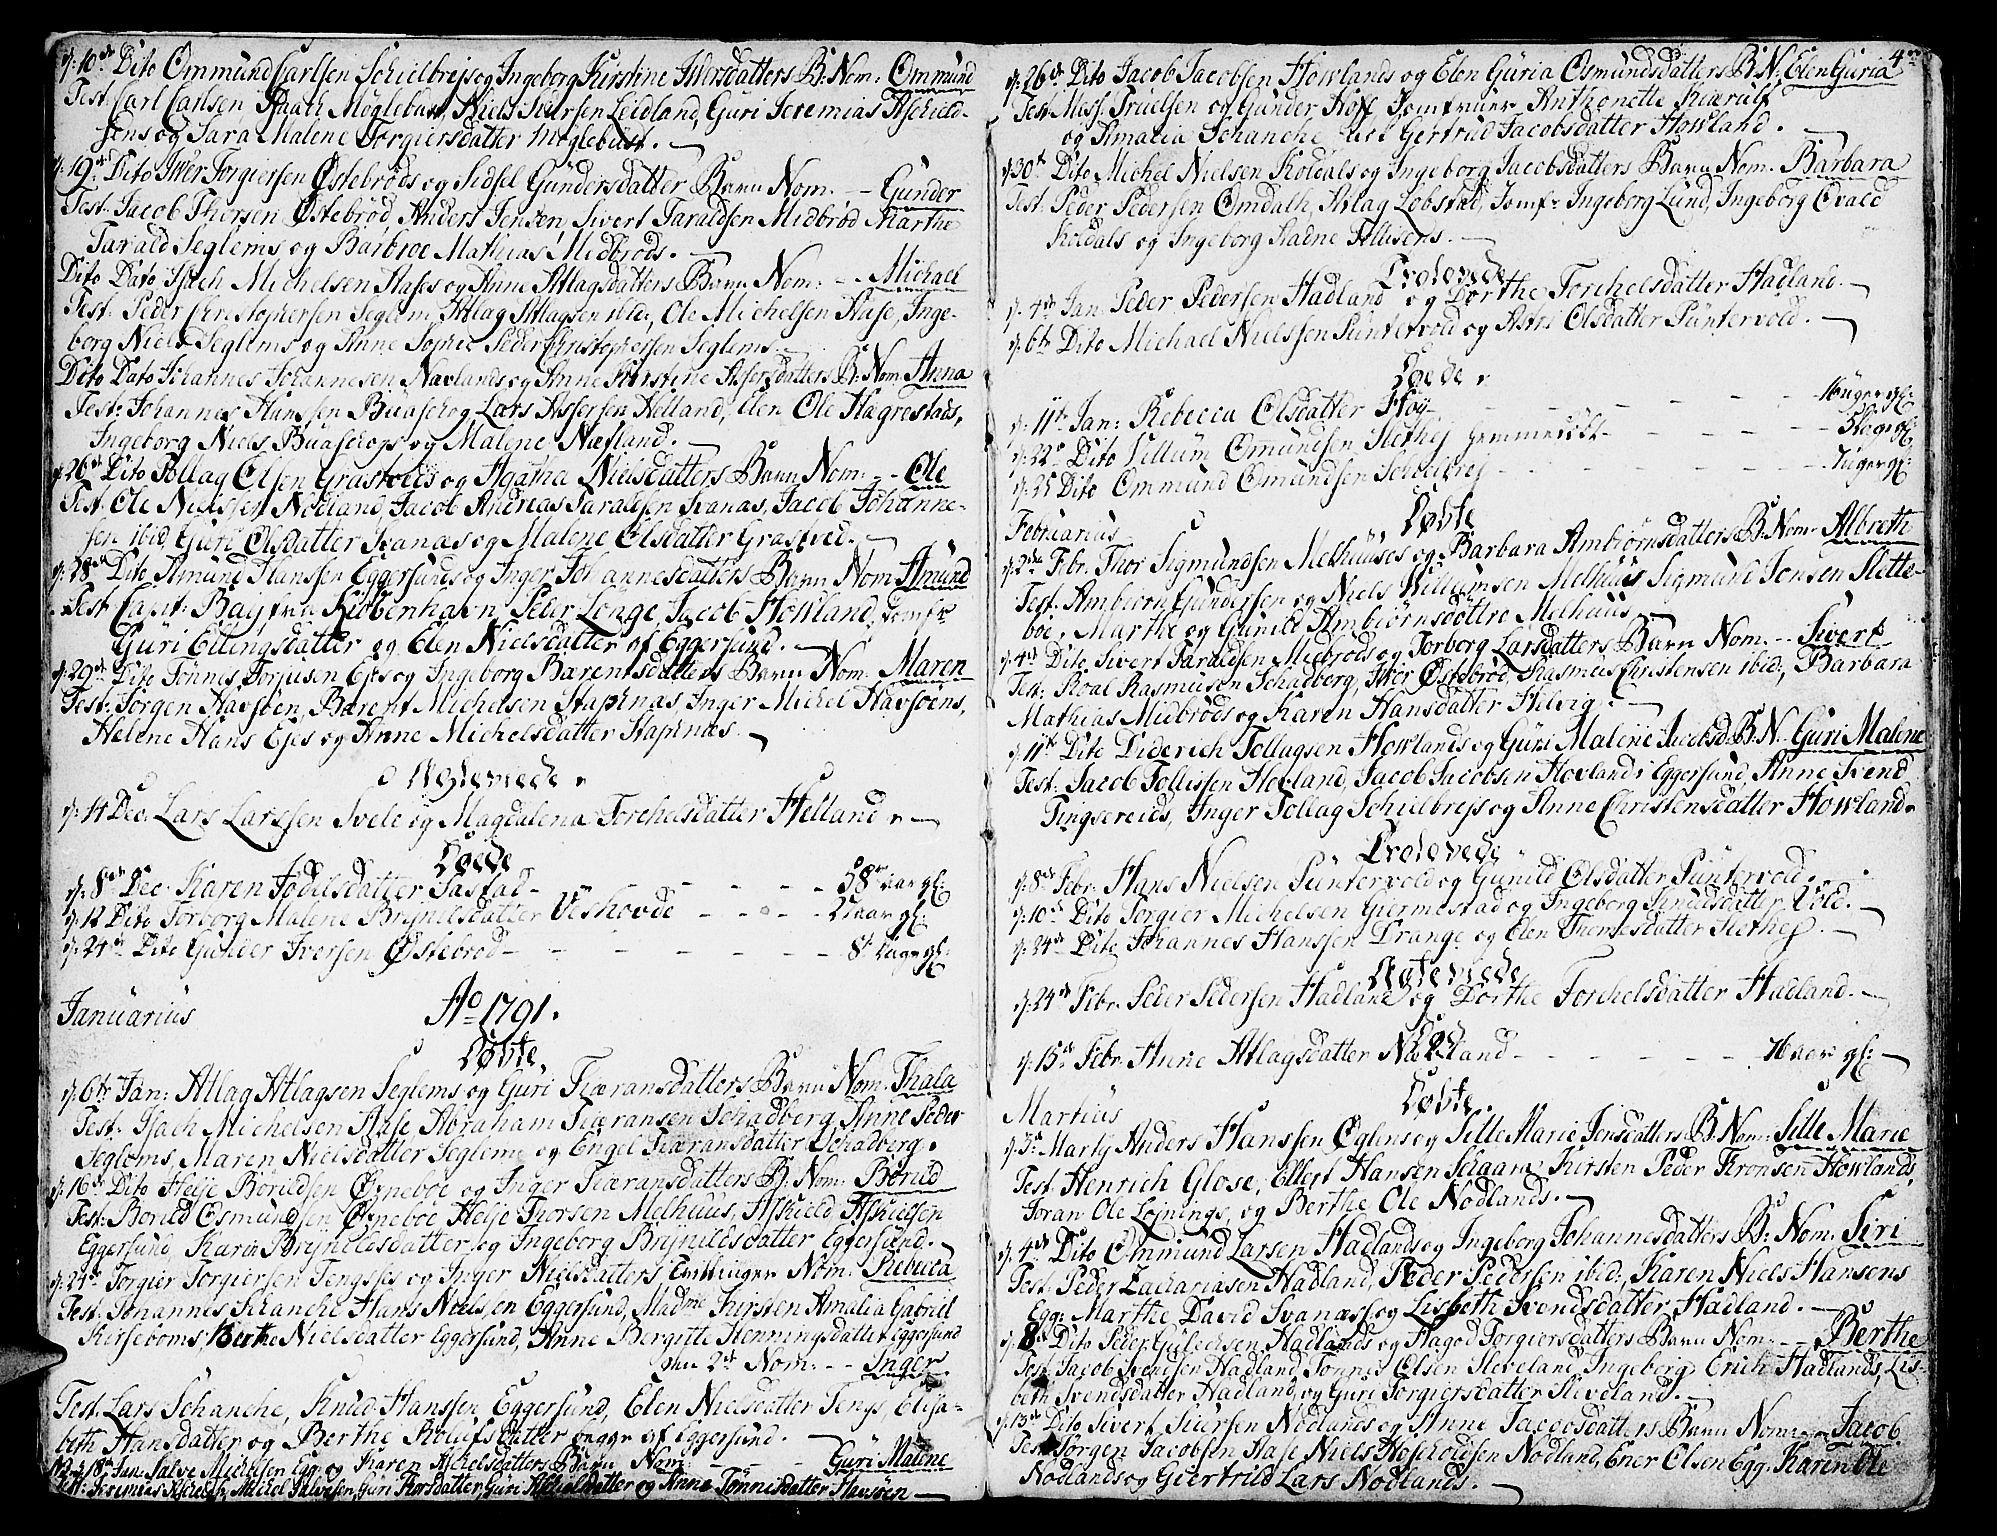 d: 10de Dito Ommund Carlsen Schielbreis og Ingeborg Kirstine Iversdatters B: Nom: Ommund
Test: Carl Carlsen, Møglebust, Niels Leidland, Guri Jeremias Aschield-
sens og Sara Malene Torgiersdatter Møglebust.
d: 19de Dito Iver Torgiersen Østebrøds og Sidsel Gundersdatter Barn Nom: -- Gunder
Test: Jacob Thorsen Østebrød, Anders Jensen, Sivert Taraldsen Midbrød, Marthe
Tarald Seglems og Barbroe Mathias Midbrøds.
Dito Dato Isach Michelsen Aases og Anne Atlagsdatters Barn Nom: -- Michael
Test: Peder Christophersen Seglem, Atlag Atlagsen ibid:, Ole Michelsen Aase, Inge-
borg Niels Seglems og Anne Sophie Peder Christophersen Seglems.
Dito Dato Johannes Johannesen Nævlands og Anne Kirstine Assersdatters B: Nom: Anna
Test: Johannes Hanssen Buascher og Lars Assersen Helland, Elen Ole Hægrestads,
Ingeborg Niels og Malene Næfland.
d: 26de Dito Tollag Olsen Grastveds og Agatha Nielsdatters Barn Nom: -- Ole
Test: Ole Nielssen Nodland, Jacob Andreas Taraldsen Svanæs, Jacob Johanne-
sen ibid, Guri Olsdatter Svanæs og Malene Olsdatter Grastved.
d: 28de Dito Amund Hanssen Eggersunds og Inger Johannesdatters Barn Nom: Amund
Test: Capit: Baij fra Kiøbenhavn, Peder Longe, Jacob Howland, Jomfr
Guri Ellingsdatter og Elen Nielsdatter af Eggersund.
d: 29de Dito Tønnes Torjusen Ejes og Ingeborg Bærentsdatters Barn Nom: Maren
Test: Jørgen Havsøen, Bærent Michelsen Stapnæs, Inger Michel Havsøens,
Helene Hans Ejes og Anne Michelsdatter Stapnæs.
Ægteviede
d: 14 Dec. Lars Larssen Svele og Magdalena Torchelsdatter Helland.
Døde
d: 8de Dec. Karen Jodelsdatter Sastad - - - - - 58 aar gl:
d: 12 Dito Torborg Malene Brynildsdatter Veshovde - - - - 2 aar gl:
d: 24de Dito Gunder Iversen Østebrød - - - - - - 8t Dage gl:
Januarius Ao 1791.
Døbte
d: 6te Jan: Atlag Atlagsen Seglems og Guri Fiæransdatters Barn Nom: Thala
Test: Isach Michelsen Aase, Abraham Fiæransen Schadberg, Anne Peder
Seglems, Maren Nielsdatter Seglem og Engel Fiæransdatter Schadberg.
d: 16de Dito Helje Børildsen Ørneboe og Inger Fiæransdatters B: Nom: Børild
Test: Børild Osmundsen Ørneboe, Helje Thorsen Melhuus, Askield Askielsen
Eggersund, Karen Brynildsdatter og Ingeborg Brynildsdatter Eggersund.
d: 24de Torgier Torgiersen Tengses og Inger Nielsdatters, Tvillinger Nom: Rebecca
Test: Johannes Schanche, Hans Nielssen Eggersund, Madme Kirsten Amalia Gabriel
Kirseboms, Berthe Nielsdatter Eggersund, Anne Bergitte Henningsdatter Eggersund
den 2de Nom: -- Inger
Test: Lars Schanche, Knud Hanssen Eggersund, Elen Nielsdatter Tengs, Elisa-
beth Hansdatter og Berthe Roulfsdatter begge af Eggersund.
18de Jan: Salve Michelsen Egg: og Karen Askelsdatters Barn Nom: - - Guri Malene
Test: Jeremias Askields, Michel Salvesen, Guri Thorsdatter, Guri Askielsdatter og Anne Tønnisdatter Havsøen
4
d: 26de Dito Jacob Jacobsen Howlands og Elen Guria Osmundsdatters B: N: Elen Guria
Test: Mess: Truelsen og Gunder Hoff, Jomfruer Anthonette Kierulf
og Amalia Schanche, Gertrud Jacobsdatter Howland.
d: 30te Dito Michel Nielsen Koldals og Ingeborg Jacobsdatters Barn Nom: Barbara
Test: Peder Pedersen Omdalh, Aslag Lobstad, Jomfr Ingeborg Lund, Ingeborg Evald
Koldals og Ingeborg Tollisens.
Trolovede
d: 4de Jan: Peder Pedersen Hadland og Dorthe Torchelsdatter Hadland.
d: 6te Dito Michael Nielssen Puntervold og Astri Olsdatter Puntervold.
Døde
d: 11te Jan: Rebecca Olsdatter Høy - - - - - 16 uger gl:
d: 22de Dito Villum Omundsen Slethej hjemmedøbt - - - - 5 dage gl:
d: 25 Dito Ommund Omundsen Schielbrej - - - - 7 uger gl:
Februarius Døbte
d: 2den Febr: Thor Sigmundsen Melhuuses og Barbara Ambiørnsdatters B: Nom: Albreth
Test: Ambiørn Gundersen og Niels Willumsen Melhuus, Sigmund Jonsen Slette-
boe, Marthe og Gunild Ambiørnsdøttre Melhuus.
d: 4de Dito Sivert Taraldsen Midbrøds og Torborg Larsdatters Barn Nom: -- Sivert
Test: Roal Rasmusen Schadberg, Iver Østebrød, Rasmus Christensen ibid:, Barbara
Mathias Midbrøds og Karen Hansdatter Helvig.
d: 11te Dito Diderich Tollagsen Howlands og Guri Malene Jacobsd: B: N: Guri Malene
Test: Jacob Tollissen Hovland, Jacob Jacobsen Hovland i Eggersund, Anne Svend
Tingsereids, Inger Tollag Schielbrejs og Anne Christensdatter Howland.
Trolovede
d: 8de Febr: Hans Nielsen Puntervold og Gunild Olsdatter Puntervold.
d: 10de Dito Torgier Michelsen Giermestad og Ingeborg Knudsdatter Vold.
d: 24de Dito Johannes Hanssen Drange og Elen Thomesdatter Slethej.
Ægteviede
d: 24de Febr: Peder Pedersen Hadland og Dorthe Torchelsdatter Hadland.
Død
d: 15de Febr: Anne Atlagsdatter Nævland - - - - - - 76 aar gl:
Martius Døbte.
d: 3de Marty Anders Hanssen Oglens og Sille Marie Jensdatters B: Nom: Sille Marie
Test: Henrich Glose, Ellert Hansen Seigam, Kirsten Peder Thronsen Howlands,
Joran Ole Løjnings, og Berthe Ole Nodlands.
d: 4de Dito Ommund Larsen Hadlands og Ingeborg Johannesdatters B: Nom: Siri
Test: Peder Zachariasen Hadland, Peder Pedersen ibid:, Karen Niels Hansens
Egg: Marthe David Svanæs og Lisbeth Svendsdatter Hadland.
d: 8de Dito Peder Gulichsen Hadlands og Magod Torgiersdatters Barn Nom: -- Berthe
Test: Jacob Svendsen Hadland, Tønnes Olsen Sleveland, Ingeborg Erich Hadlands, Lis-
beth Svendsdatter Hadland, og Guri Torgiersdatter Sleveland.
d: 13de Dito Sivert Siversen Nodlands og Anne Jacobsdatters Barn Nom: -- Jacob
Test: Jørgen Jacobsen Aase, Niels Nodland, Ener Olsen Egg: Karen Ole
Nodlands og Geertrild Lars Nodlands.